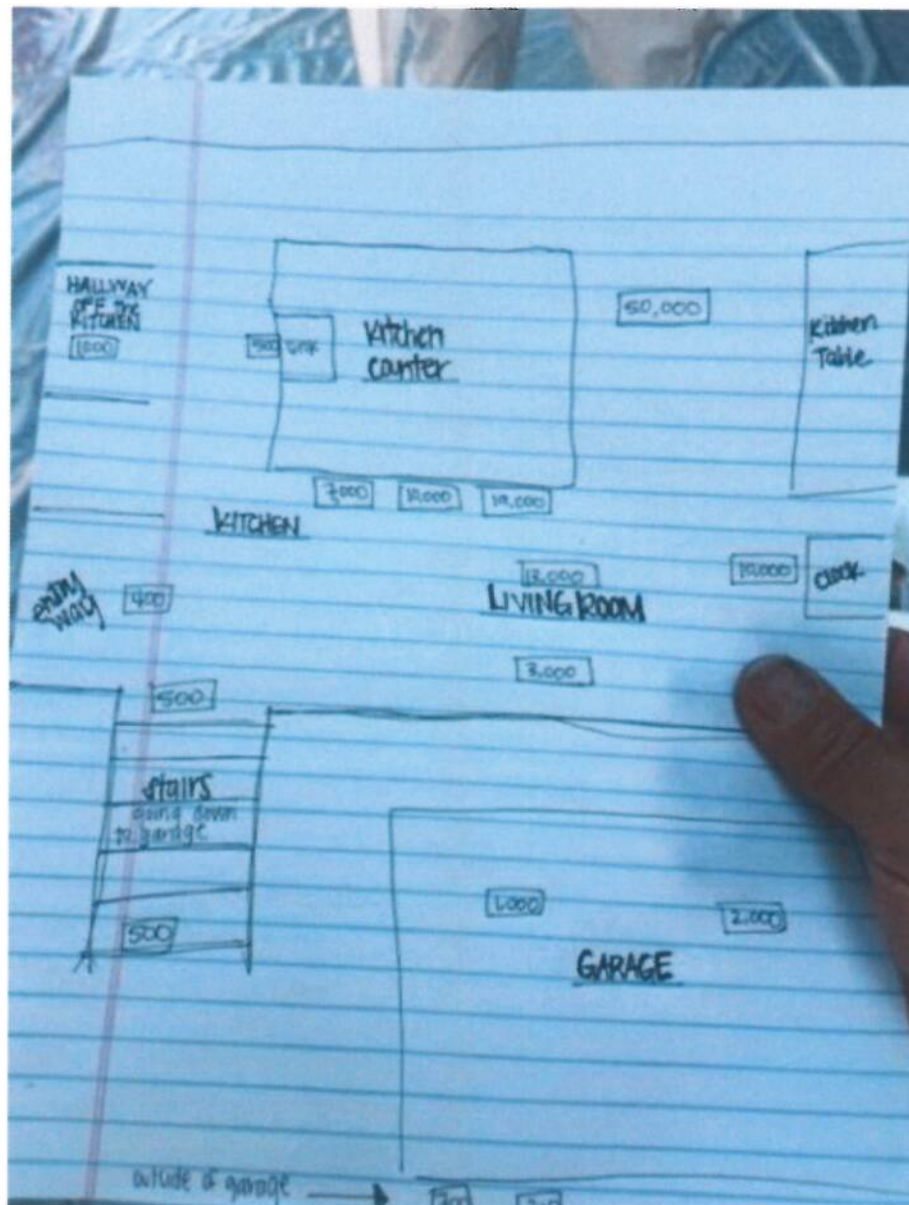 HALLWAY
OFF THE
KITCHEN
1,000
500 SINK
Kitchen
counter
50,000
Kitchen
Table
7,000
19,000
KITCHEN
entry
way
400
10,000
clock
LIVING ROOM
3,000
500
stairs
going down
to garage
500
1,000
2,000
GARAGE
outside of garage